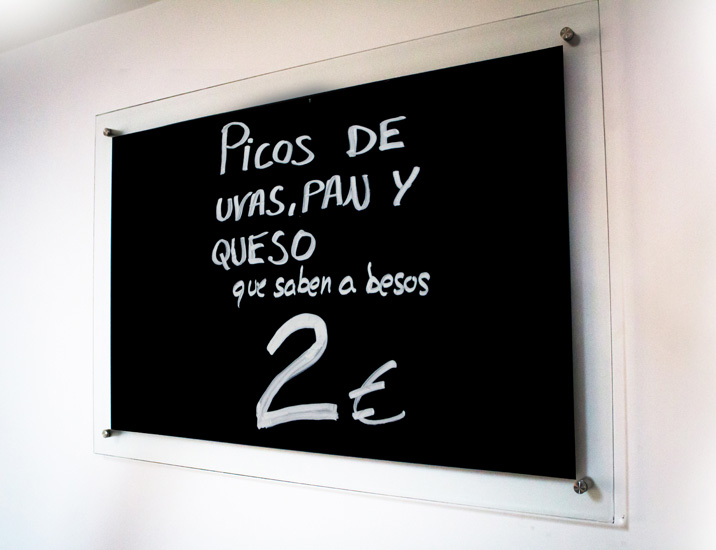 Picos DE
UVAS, PAN Y
QUESO
que saben a besos
2 €